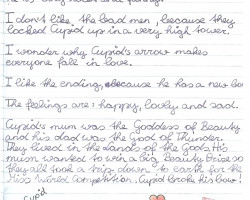 I don't like the bad men, because they
locked Cupid up in a very high tower.
I wonder why Cupid's arrow makes
everyone fall in love.
I like the ending, because he has a new bo
The feelings are: happy, lovly and sad.
Cupid's mum was the Goddess of Beauty
and his dad was the God of Thunder.
They lived in the Lands of the Gods. His
mum wanted to win a big Beauty Prize so
they all took a trip down to earth for the
Miss World Competition. Cupid broke his bow!
Cupid